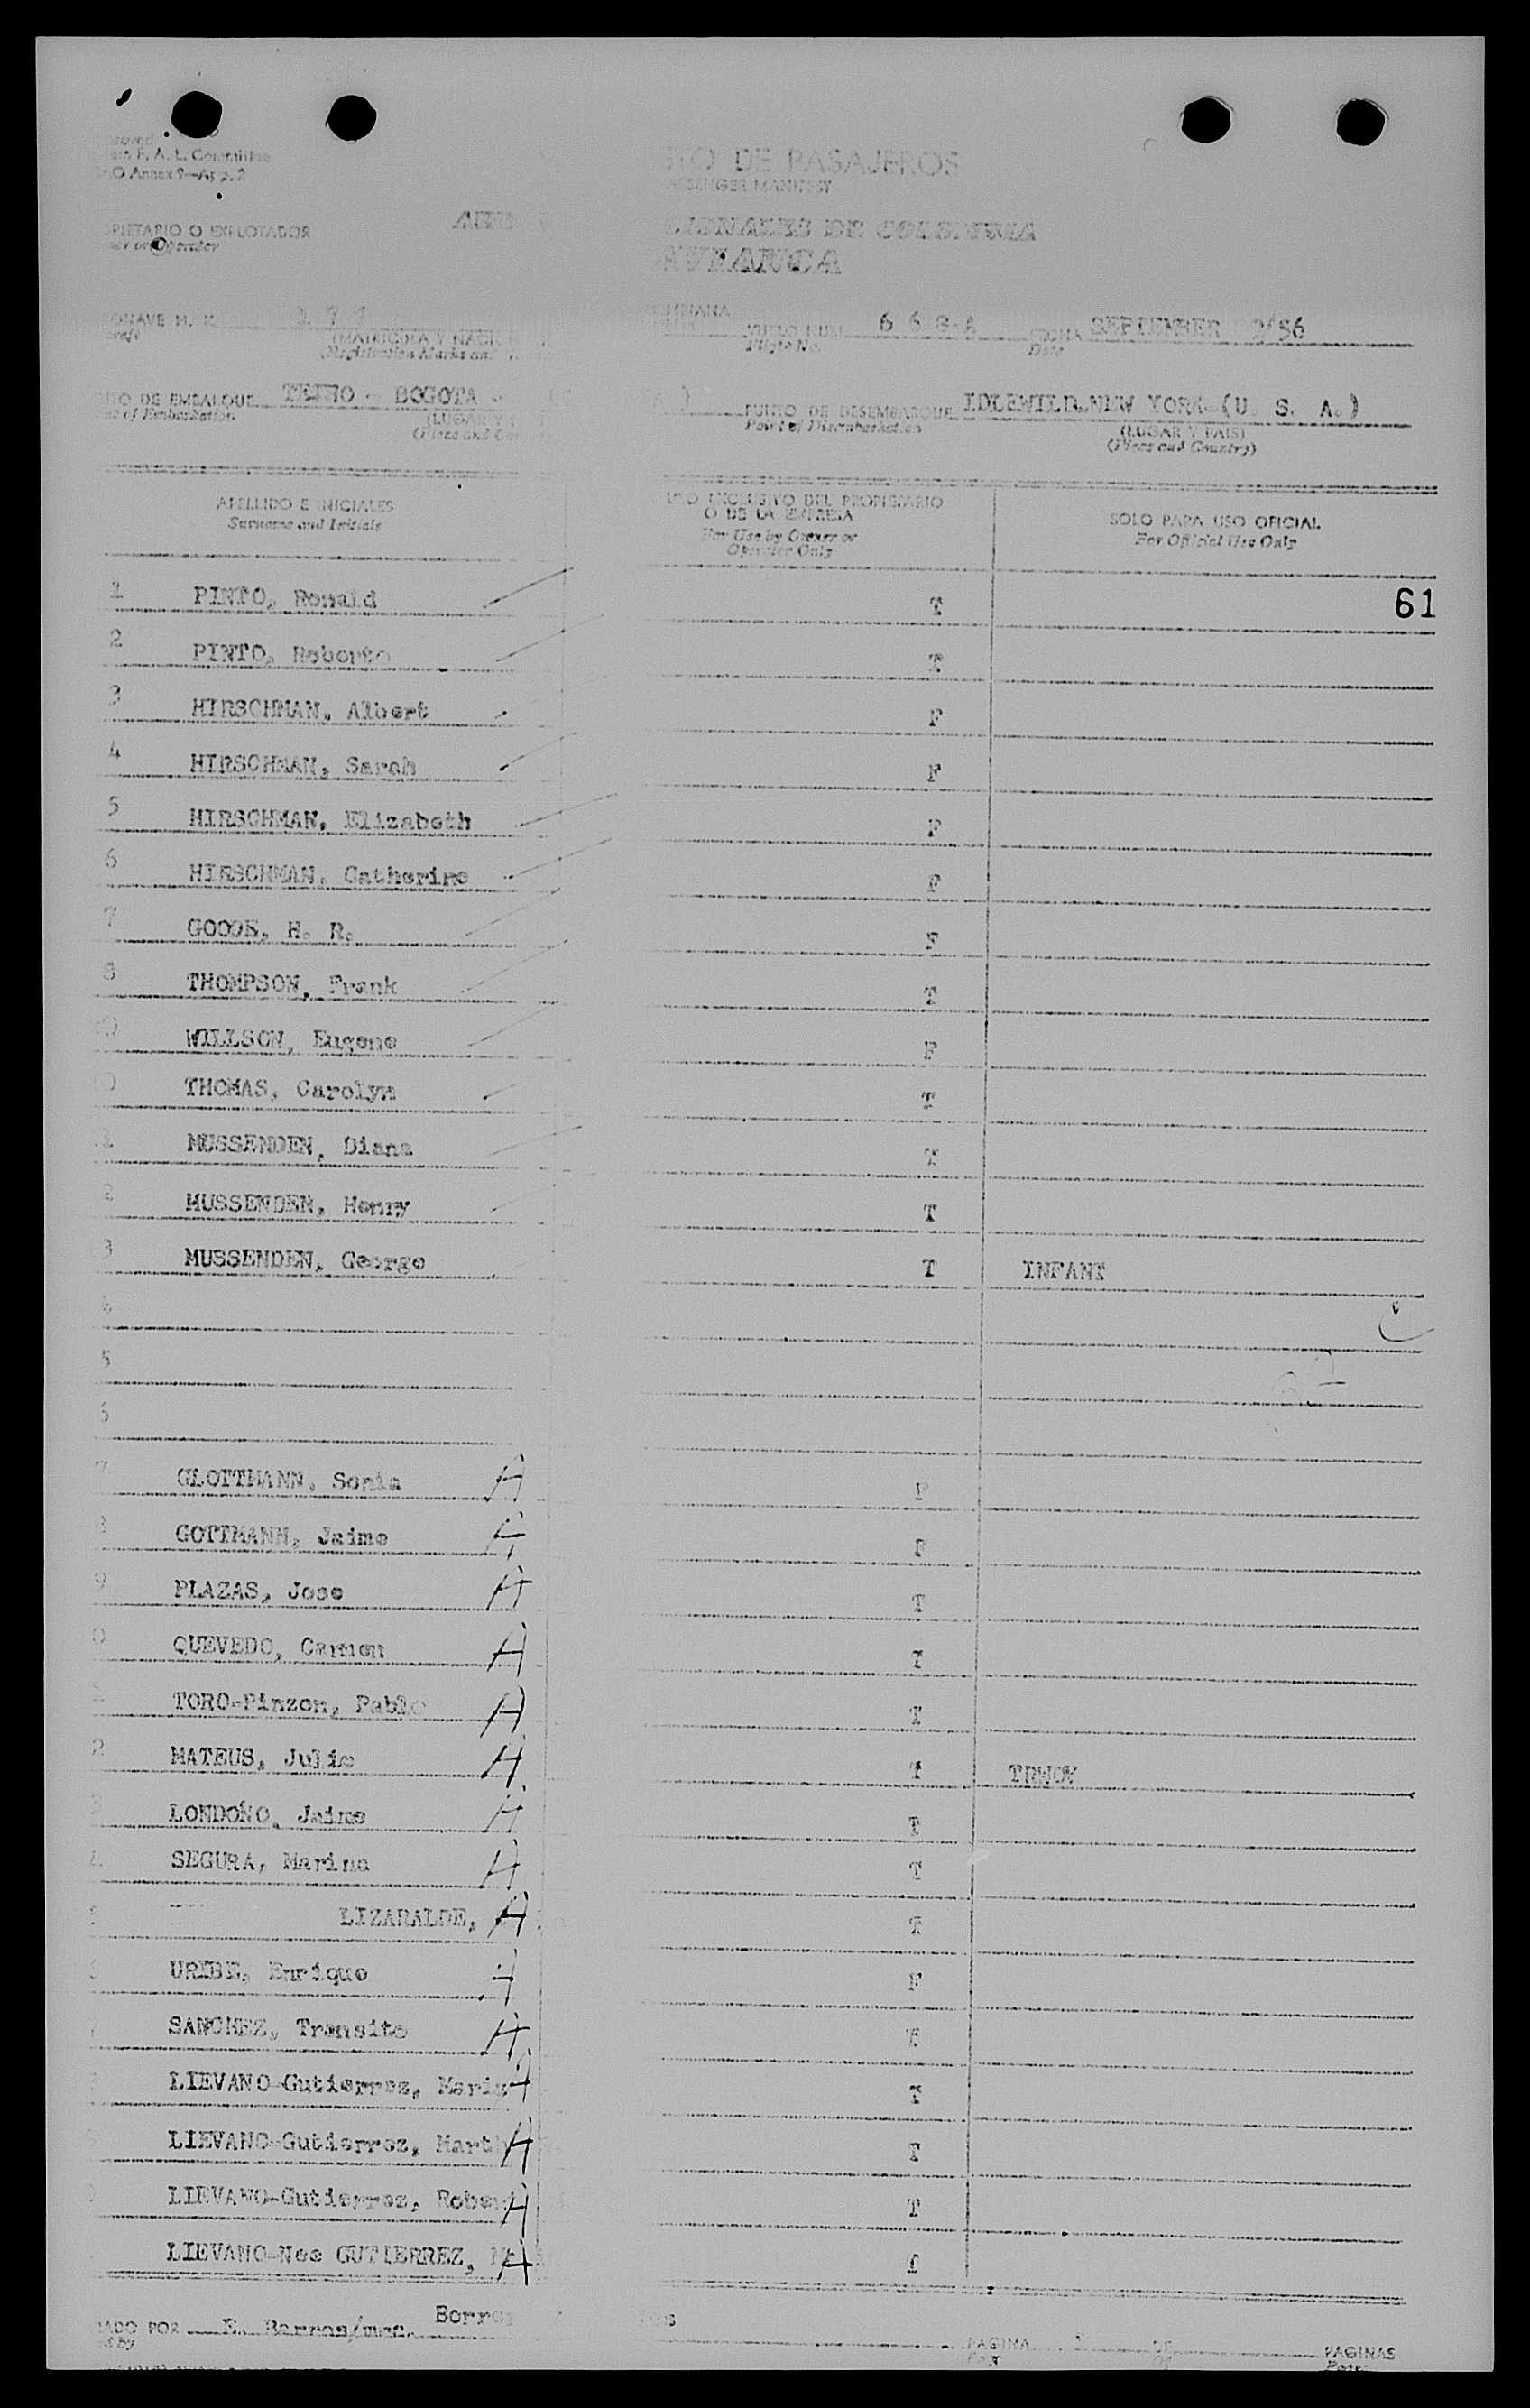 F. A. L. Committee
O Annex 9—App. 2
O DE PASAJEROS
SENGER MANIFEST
PIETARIO O EXPLOTADOR
or Operator
CIONALES DE COLOMBIA
AVIANCA
ONAVE H. K.
(MATRICULA Y NACIO
(Registration Marks and
VUELO NUM. 6 6 8-A
Flight No.
FECHA SEPTEMBER 2/56
Date
TO DE EMBARQUE TECHO - BOGOTA -
of Embarkation
(LUGAR Y
(Place and Co
PUNTO DE DESEMBARQUE IDLEWILD.NEW YORK-(U. S. A.)
Point of Disembarkation
(LUGAR Y PAIS)
(Place and Country)
APELLIDO E INICIALES
Surname and Initials
USO EXCLUSIVO DEL PROPIETARIO
O DE LA EMPRESA
For Use by Owner or
Operator Only
SOLO PARA USO OFICIAL
For Official Use Only
1 PINTO, Ronald T 61
2 PINTO, Roberto T
3 HIRSCHMAN, Albert F
4 HIRSCHMAN, Sarah F
5 HIRSCHMAN, Elizabeth F
6 HIRSCHMAN, Catherine F
7 GOODE, H. R. F
8 THOMPSON, Frank T
WILLSON, Eugene F
THOMAS, Carolyn T
MUSSENDEN, Diana T
2 MUSSENDEN, Henry T
3 MUSSENDEN, George T INFANT
4
5
6
7 GLOTTMANN, Sonia H F
8 GOTTMANN, Jaime H F
9 PLAZAS, Jose H T
0 QUEVEDO, Carmen H T
TORO-Pinzon, Pablo H T
2 MATEUS, Julio H T
LONDOÑO, Jaime H T
SEGURA, Marina H T
LIZARALDE, H T
URIBE, Enrique H F
SANCHEZ, Transito H F
LIEVANO-Gutierrez, Maria H T
LIEVANO-Gutierrez, Marth H T
LIEVANO-Gutierrez, Rober H T
LIEVANO-Nee GUTIERREZ, H T
ADO POR E. Barros/mac.
by
PAGINA
PAGINAS